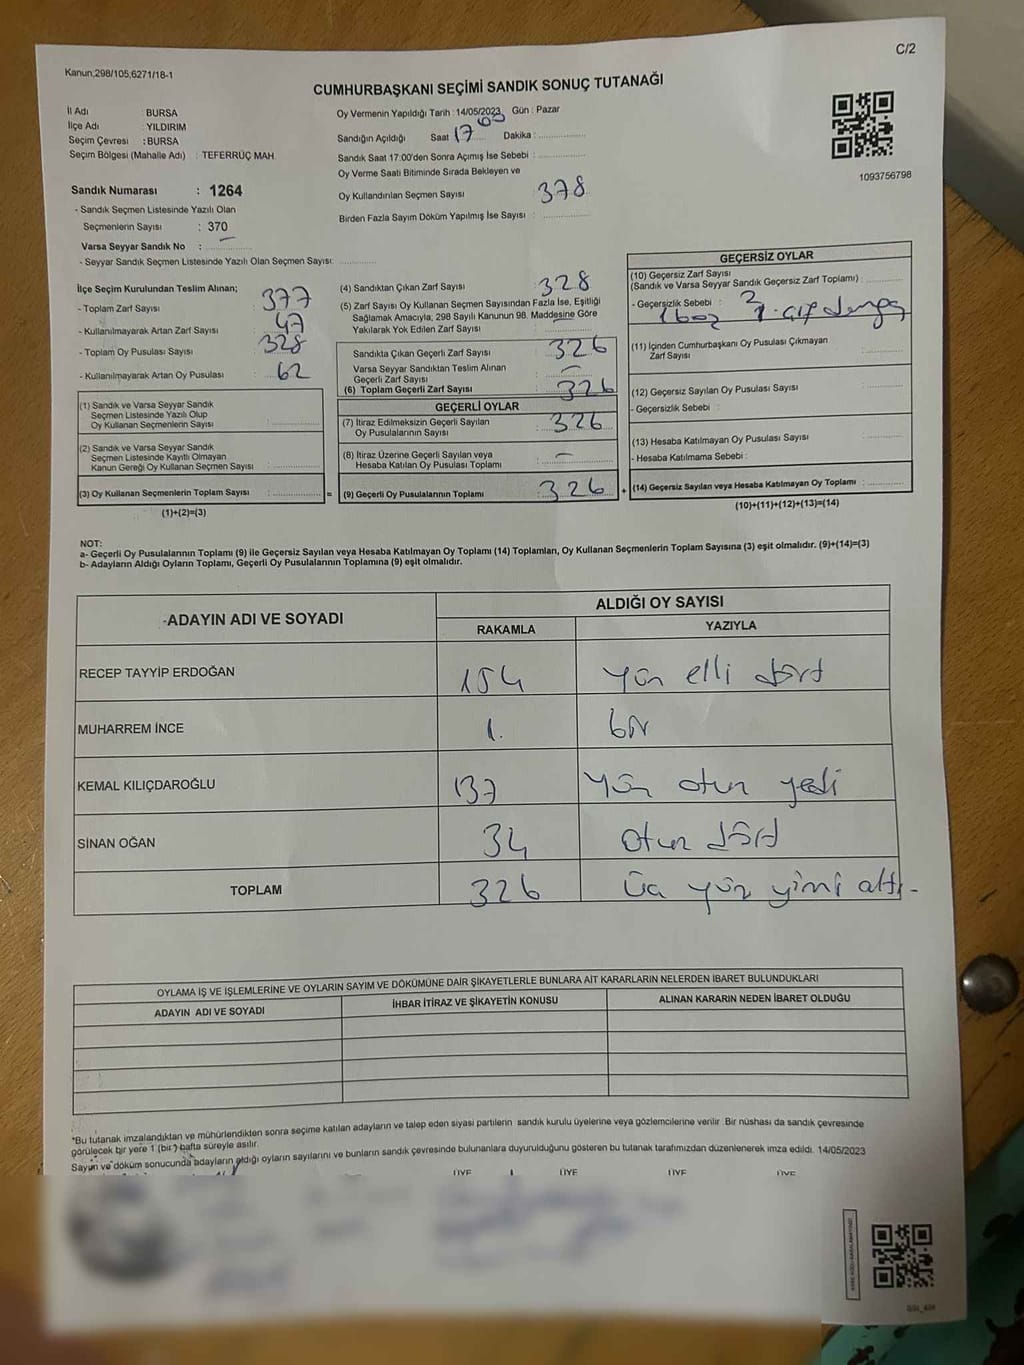 C/2
Kanun,298/105,6271/18-1
CUMHURBAŞKANI SEÇİMİ SANDIK SONUÇ TUTANAĞI
İl Adı BURSA
İlçe Adı YILDIRIM
Seçim Çevresi : BURSA
Seçim Bölgesi (Mahalle Adı) : TEFERRÜÇ MAH.
Sandık Numarası : 1264
- Sandık Seçmen Listesinde Yazılı Olan
Seçmenlerin Sayısı : 370
Varsa Seyyar Sandık No : –
- Seyyar Sandık Seçmen Listesinde Yazılı Olan Seçmen Sayısı:
Oy Vermenin Yapıldığı Tarih :14/05/2023 Gün : Pazar
Sandığın Açıldığı Saat 17 Dakika :
Sandık Saat 17:00'den Sonra Açılmış İse Sebebi :
Oy Verme Saati Bitiminde Sırada Bekleyen ve
Oy Kullandırılan Seçmen Sayısı 378
Birden Fazla Sayım Döküm Yapılmış İse Sayısı :
1093756798
İlçe Seçim Kurulundan Teslim Alınan;
- Toplam Zarf Sayısı 377
- Kullanılmayarak Artan Zarf Sayısı 47
- Toplam Oy Pusulası Sayısı 328
- Kullanılmayarak Artan Oy Pusulası 62
(1) Sandık ve Varsa Seyyar Sandık
Seçmen Listesinde Yazılı Olup
Oy Kullanan Seçmenlerin Sayısı :
(2) Sandık ve Varsa Seyyar Sandık
Seçmen Listesinde Kayıtlı Olmayan
Kanun Gereği Oy Kullanan Seçmen Sayısı :
(3) Oy Kullanan Seçmenlerin Toplam Sayısı : =
(1)+(2)=(3)
(4) Sandıktan Çıkan Zarf Sayısı 328
(5) Zarf Sayısı Oy Kullanan Seçmen Sayısından Fazla İse, Eşitliği
Sağlamak Amacıyla, 298 Sayılı Kanunun 98. Maddesine Göre
Yakılarak Yok Edilen Zarf Sayısı
Sandıkta Çıkan Geçerli Zarf Sayısı 326
Varsa Seyyar Sandıktan Teslim Alınan
Geçerli Zarf Sayısı –
(6) Toplam Geçerli Zarf Sayısı 326
GEÇERLİ OYLAR
(7) İtiraz Edilmeksizin Geçerli Sayılan
Oy Pusulalarının Sayısı 326
(8) İtiraz Üzerine Geçerli Sayılan veya
Hesaba Katılan Oy Pusulası Toplamı –
(9) Geçerli Oy Pusulalarının Toplamı 326 +
GEÇERSİZ OYLAR
(10) Geçersiz Zarf Sayısı
(Sandık ve Varsa Seyyar Sandık Geçersiz Zarf Toplamı) 2
- Geçersizlik Sebebi :
(11) İçinden Cumhurbaşkanı Oy Pusulası Çıkmayan
Zarf Sayısı
(12) Geçersiz Sayılan Oy Pusulası Sayısı
- Geçersizlik Sebebi :
(13) Hesaba Katılmayan Oy Pusulası Sayısı
- Hesaba Katılmama Sebebi :
(14) Geçersiz Sayılan veya Hesaba Katılmayan Oy Toplamı :
(10)+(11)+(12)+(13)=(14)
NOT:
a- Geçerli Oy Pusulalarının Toplamı (9) ile Geçersiz Sayılan veya Hesaba Katılmayan Oy Toplamı (14) Toplamları, Oy Kullanan Seçmenlerin Toplam Sayısına (3) eşit olmalıdır. (9)+(14)=(3)
b- Adayların Aldığı Oyların Toplamı, Geçerli Oy Pusulalarının Toplamına (9) eşit olmalıdır.
ADAYIN ADI VE SOYADI ALDIĞI OY SAYISI
RAKAMLA YAZIYLA
RECEP TAYYİP ERDOĞAN 154 yüz elli dört
MUHARREM İNCE 1. bir
KEMAL KILIÇDAROĞLU 137 yüz otuz yedi
SİNAN OĞAN 34 otuz dört
TOPLAM 326 üç yüz yirmi altı-
OYLAMA İŞ VE İŞLEMLERİNE VE OYLARIN SAYIM VE DÖKÜMÜNE DAİR ŞİKAYETLERLE BUNLARA AİT KARARLARIN NELERDEN İBARET BULUNDUKLARI
ADAYIN ADI VE SOYADI İHBAR İTİRAZ VE ŞİKAYETİN KONUSU ALINAN KARARIN NEDEN İBARET OLDUĞU
*Bu tutanak imzalandıktan ve mühürlendikten sonra seçime katılan adayların ve talep eden siyasi partilerin sandık kurulu üyelerine veya gözlemcilerine verilir. Bir nüshası da sandık çevresinde
görülecek bir yere 1 (bir) hafta süreyle asılır.
Sayım ve döküm sonucunda adayların aldığı oyların sayılarını ve bunların sandık çevresinde bulunanlara duyurulduğunu gösteren bu tutanak tarafımızdan düzenlenerek imza edildi. 14/05/2023
ÜYE ÜYE ÜYE ÜYE